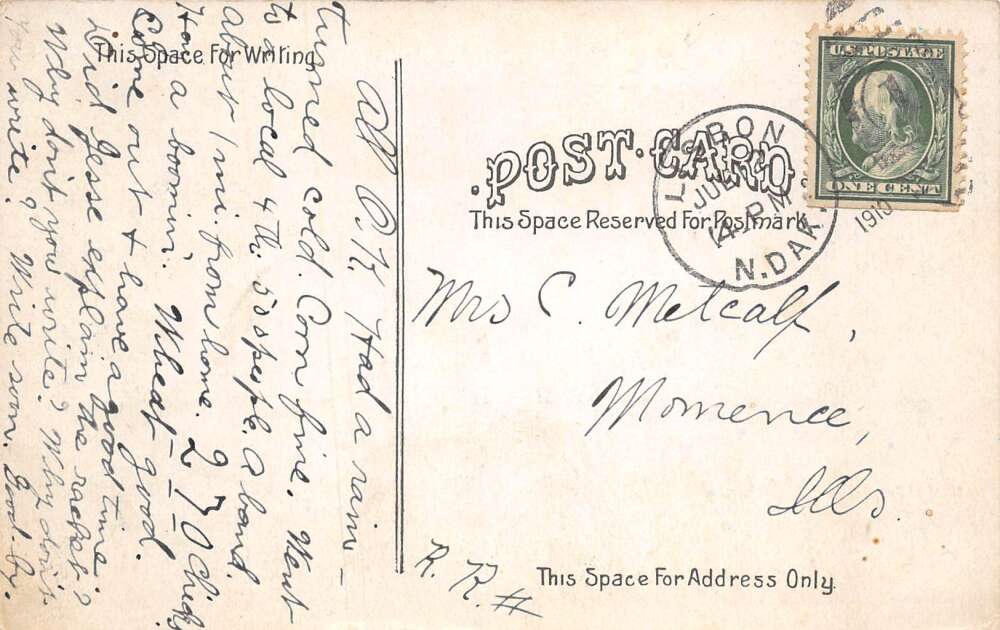 This Space For Writing
All O.K. Had a rain –
turned cold. Corn fine. Went
to a local 4th. 500 people. A band.
about 1 mi. from home. 270 Chicks
Hon a boomin'. Wheat – good.
Come out & have a good time.
Did Jesse explain the racket?
Why don't you write? Why don't
you write? Write soon. Good by.
POST CARD
This Space Reserved For Postmark
LISBON
JUL
4-PM
N. DAK.
1910
U.S. POSTAGE
ONE CENT
Mrs C. Metcalf,
Momence,
Ills.
R. R. #
This Space For Address Only.